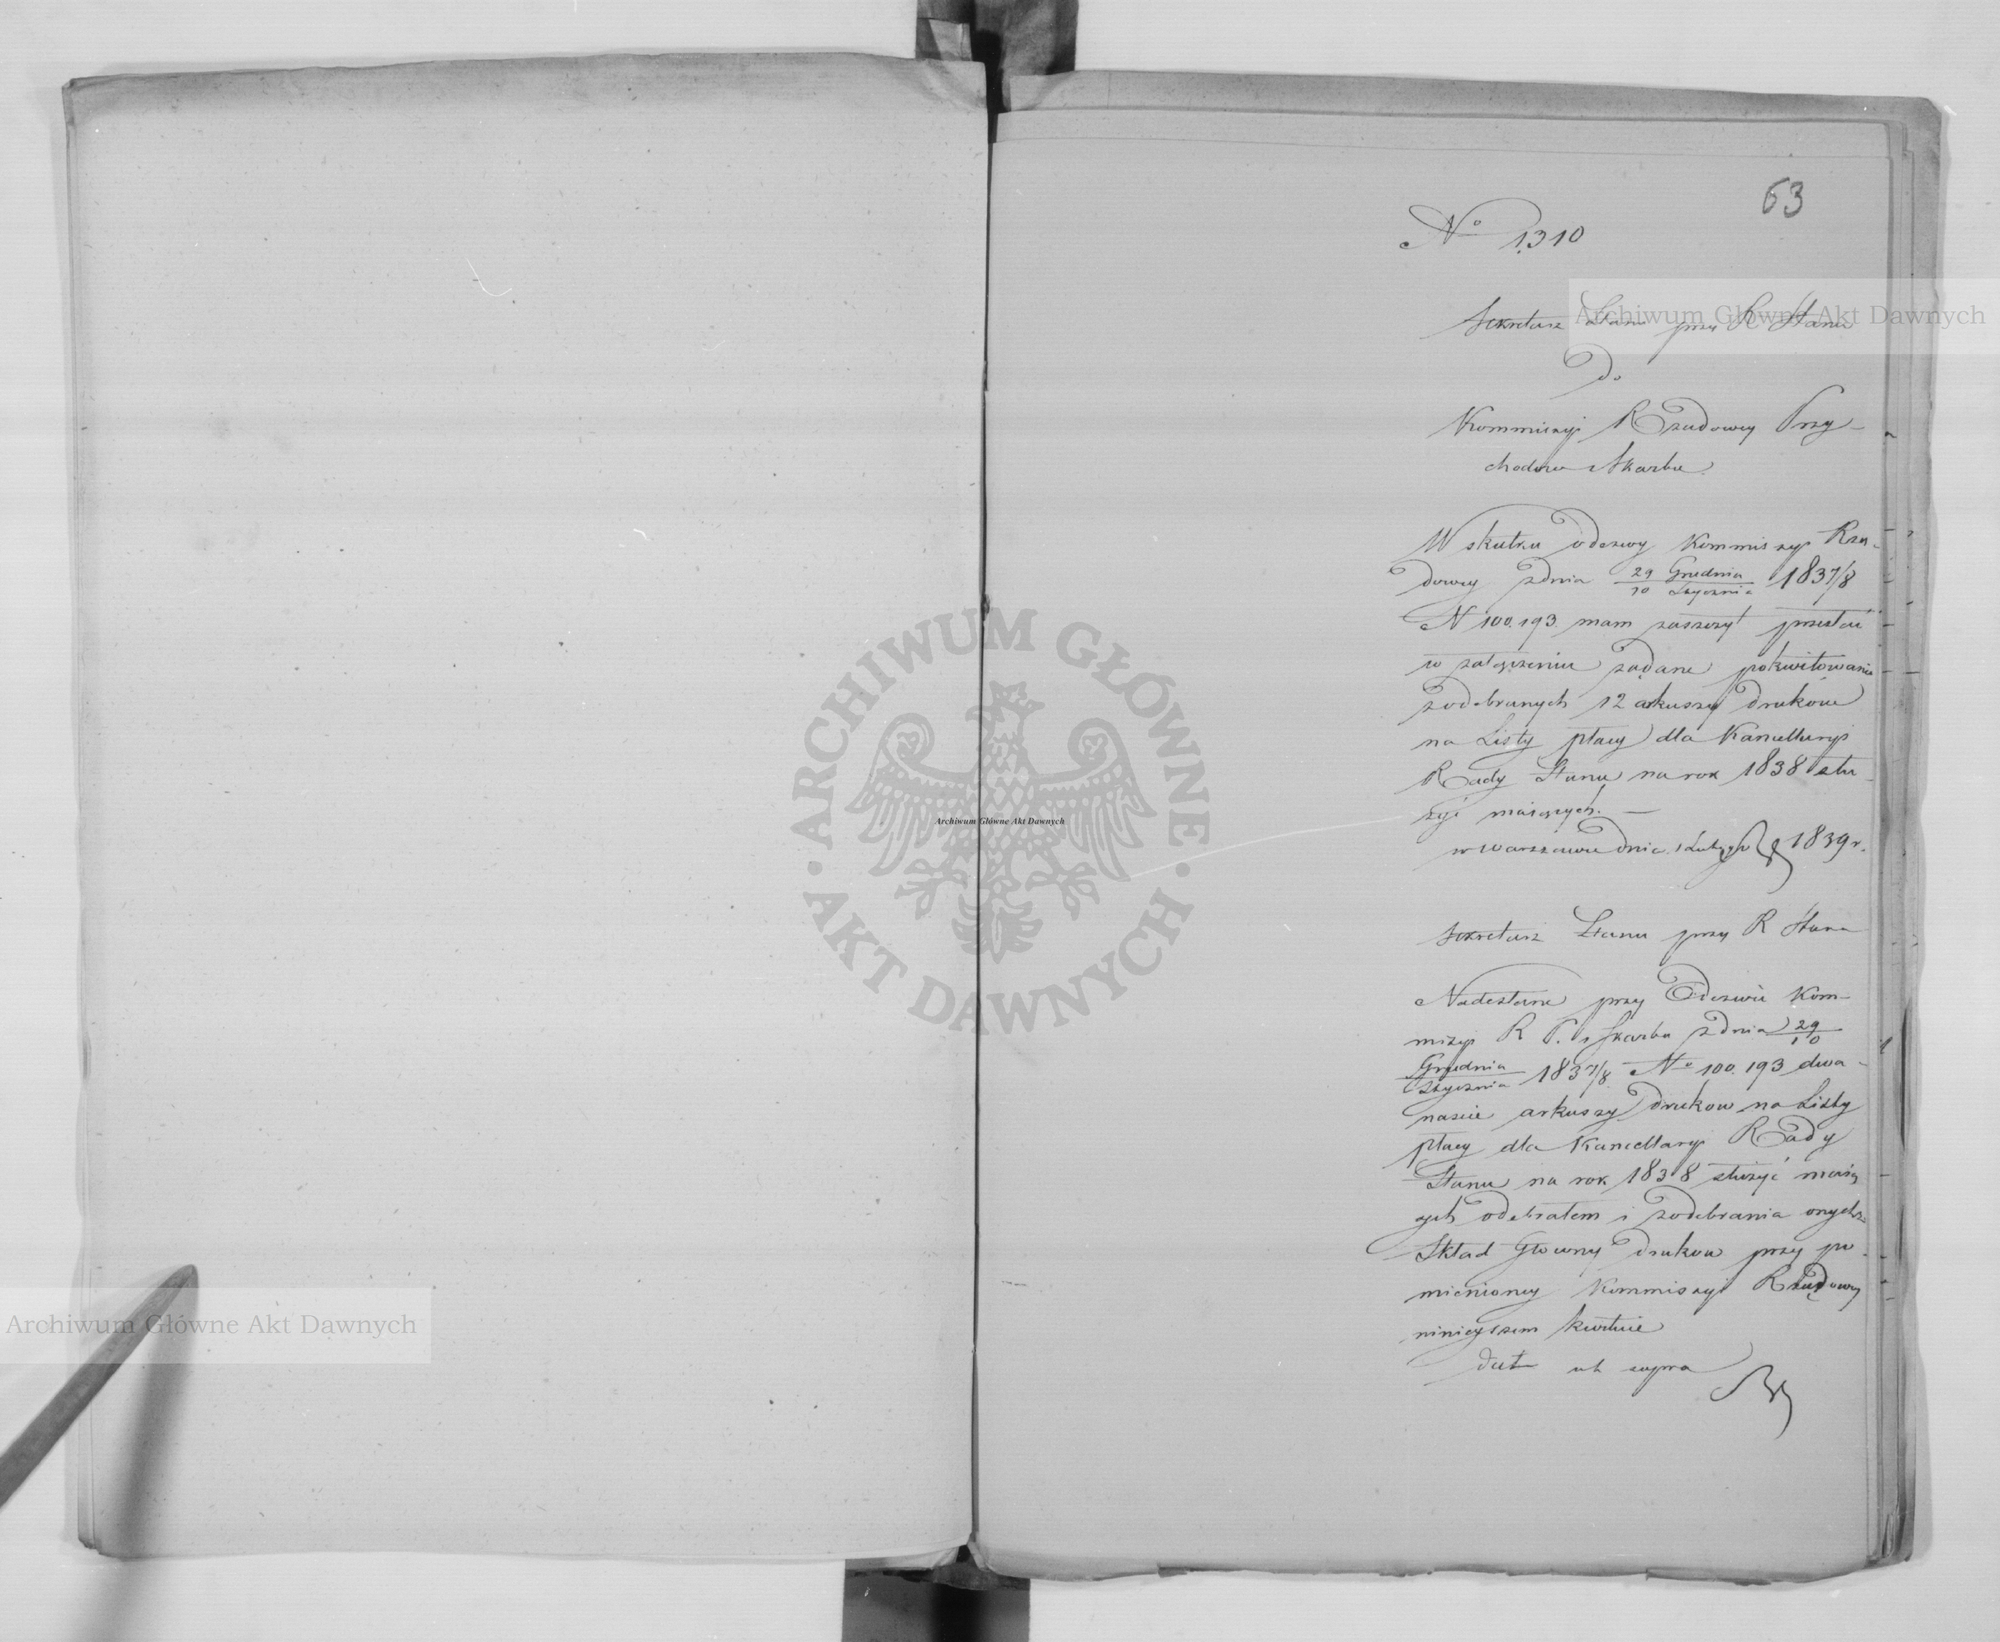 63
No 1310
Sekretarz Stanu przy R Stanu
Do
Kommissyi Rządowey Przy-
chodow i Skarbu
W skutku odezwy Kommissyi Rzą-
dowey z dnia 29 Grudnia / 10 Stycznia 1837/8
N 100.193 mam zaszczyt przesłać
w załączeniu żądane pokwitowanie
z odebranych 12 arkuszy druków
na Listy płacy dla Kancellaryi
Rady Stanu na rok 1838 słu-
żyć maiących. —
w Warszawie dnia 1 Lutego 1839 r.
Sekretarz Stanu przy R Stanu
Nadesłane przy Odezwie Kom-
missyi R P. i Skarbu z dnia 29/10
Grudnia / Stycznia 1837/8 No 100.193 dwa-
naście arkuszy druków na Listy
płacy dla Kancellaryi Rady
Stanu na rok 1838 służyć maią
cych odebrałem i z odebrania onychże
Skład Główny druków przy po-
mienioney Kommissyi Rządowey
ninieyszem kwituię
dat ut supra
Archiwum Główne Akt Dawnych
Archiwum Główne Akt Dawnych
Archiwum Główne Akt Dawnych
ARCHIWUM GŁÓWNE AKT DAWNYCH